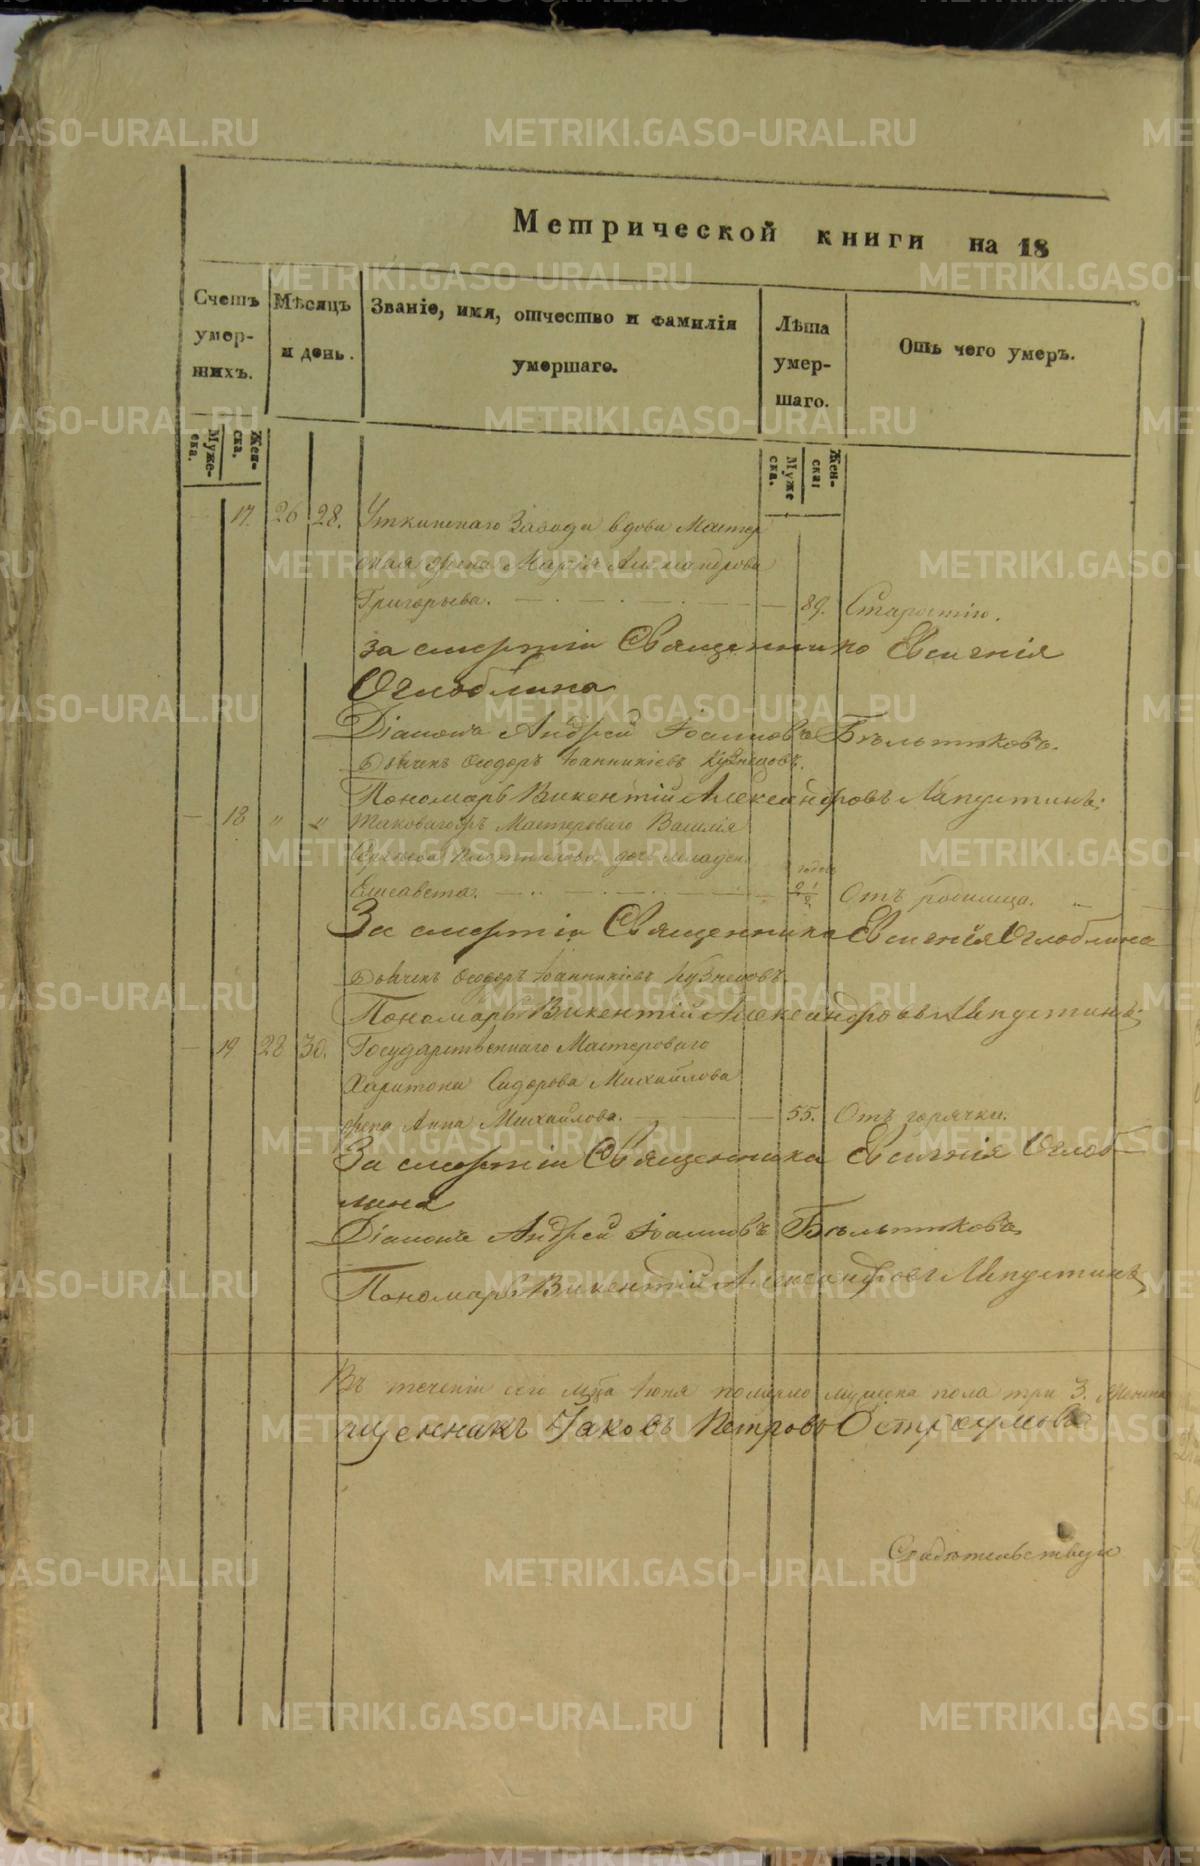 Метрической книги на 18
Счетъ умер-шихъ.
Мѣсяцъ и день.
Званіе, имя, отчество и фамилія умершаго.
Лѣта умер-шаго.
Отъ чего умеръ.
Муже-ска.
Жен-ска.
Муже ска.
Жен-ска
17. 26 28. Уткинскаго Завода вдова Мастер
ская жена Марія Александрова
Григорьева. 89. Старостію.
за смертію Священника Евсигнія
Оглоблина
Діаконъ Андрей Іоанновъ Бѣльтиковъ.
Дьячекъ Ѳеодоръ Іоанникіевъ Кузнецовъ.
Пономарь Викентій Александровъ Лапустинъ
18 " " Таковагожъ Мастероваго Василія
дочь младен.
Елисавета. 2 1/2 Отъ родимца.
За смертію Священника Евсигнія Оглоблина
Дьячекъ Ѳеодоръ Іоанникіевъ Кузнецовъ.
Пономарь Викентій Александровъ Лапустинъ
19 28 30. Государственнаго Мастероваго
Харитона Сидорова Михайлова
жена Анна Михайлова. 55. Отъ горячки.
За смертію Священника Евсигнія Оглоб-
лина
Діаконъ Андрей Іоанновъ Бѣльтиковъ
Пономарь Викентій Александровъ Лапустинъ
Въ теченіи сего м-ца Іюня померло мужеска пола три 3. Женска
щенникъ Іаковъ Петровъ Остроумовъ
Свидѣтельствую
METRIKI.GASO-URAL.RU